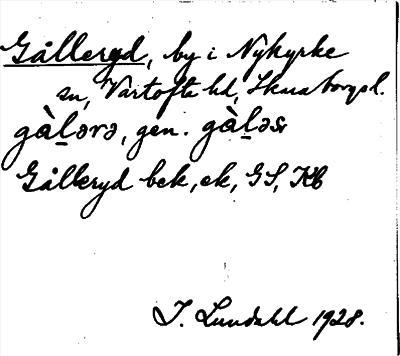 Gålleryd, by i Nykyrke
sn, Vartofte hd, Skaraborgs l.
gàl̲ərə, gen. gàl̲əs
Gålleryd bek, ek, GS, KB
I. Lundahl 1928.